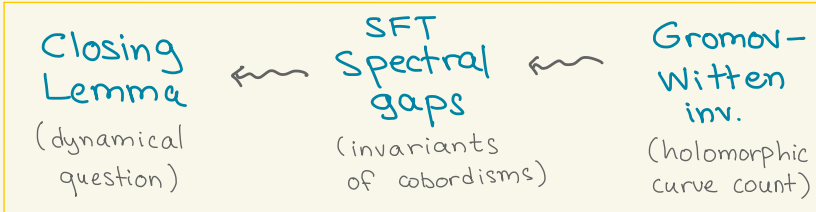 Closing
Lemma
(dynamical
question)
SFT
Spectral
gaps
(invariants
of cobordisms)
Gromov-
Witten
inv.
(holomorphic
curve count)